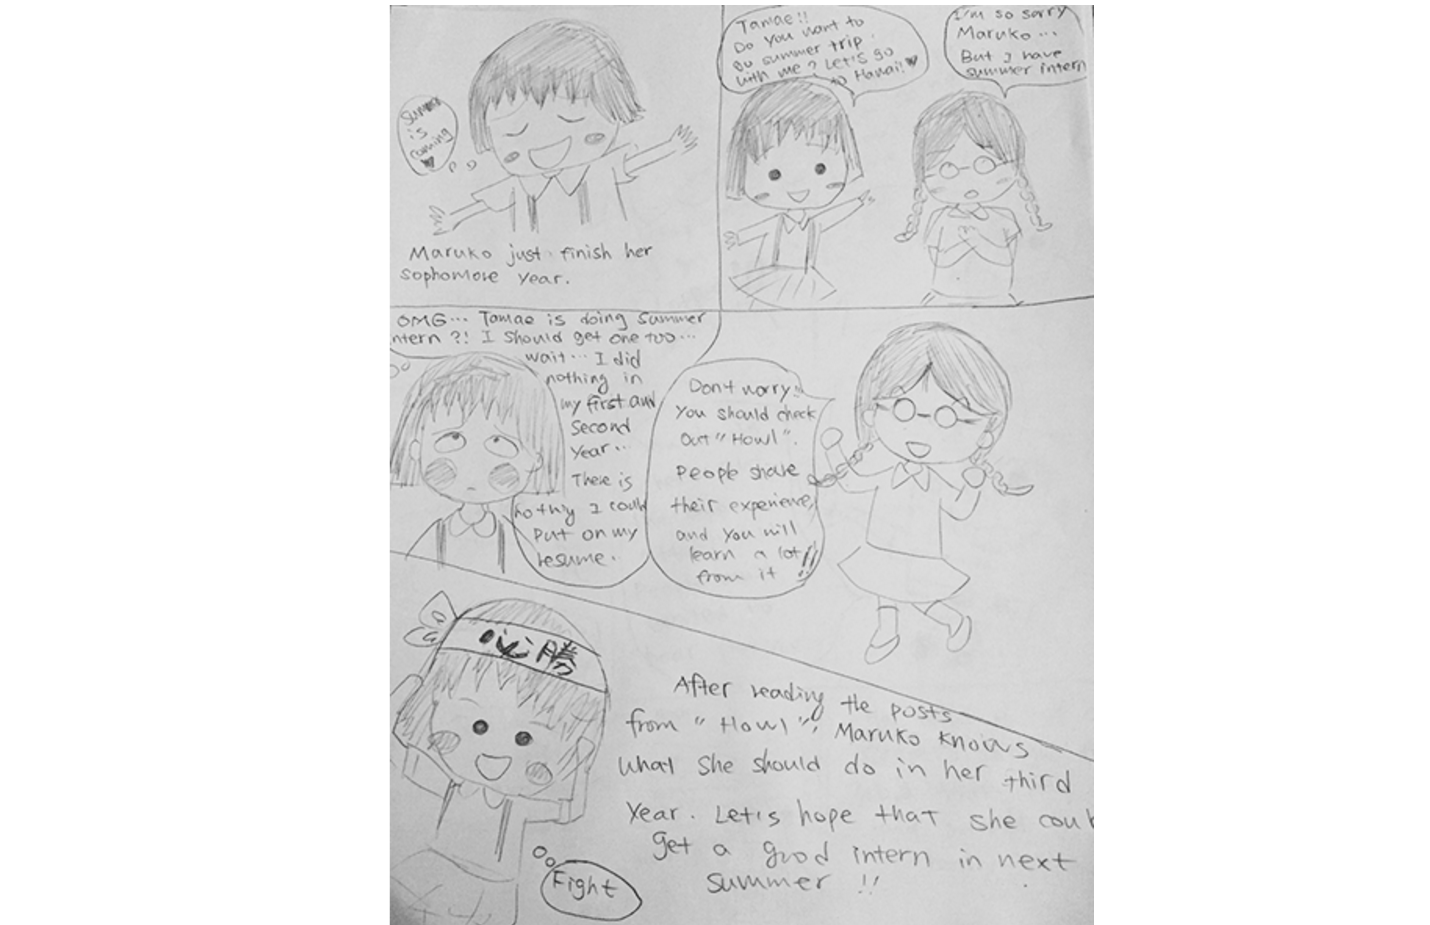 Summer
is
coming
♥
Maruko just finish her
sophomore year.
Tamae!!
Do you want to
Go summer trip
with me? Let's go
to Hawai!♥
I'm so sorry
Maruko...
But I have
summer intern
OMG... Tamae is doing Summer
ntern?! I should get one too...
wait... I did
nothing in
my first and
Second
year...
There is
nothing I could
put on my
resume.
Don't worry!!
You should check
out "Howl".
People share
their experience,
and you will
learn a lot
from it!!
必勝
After reading the posts
from "Howl", Maruko knows
what she should do in her third
year. Let's hope that she coul
get a good intern in next
summer!!
Fight